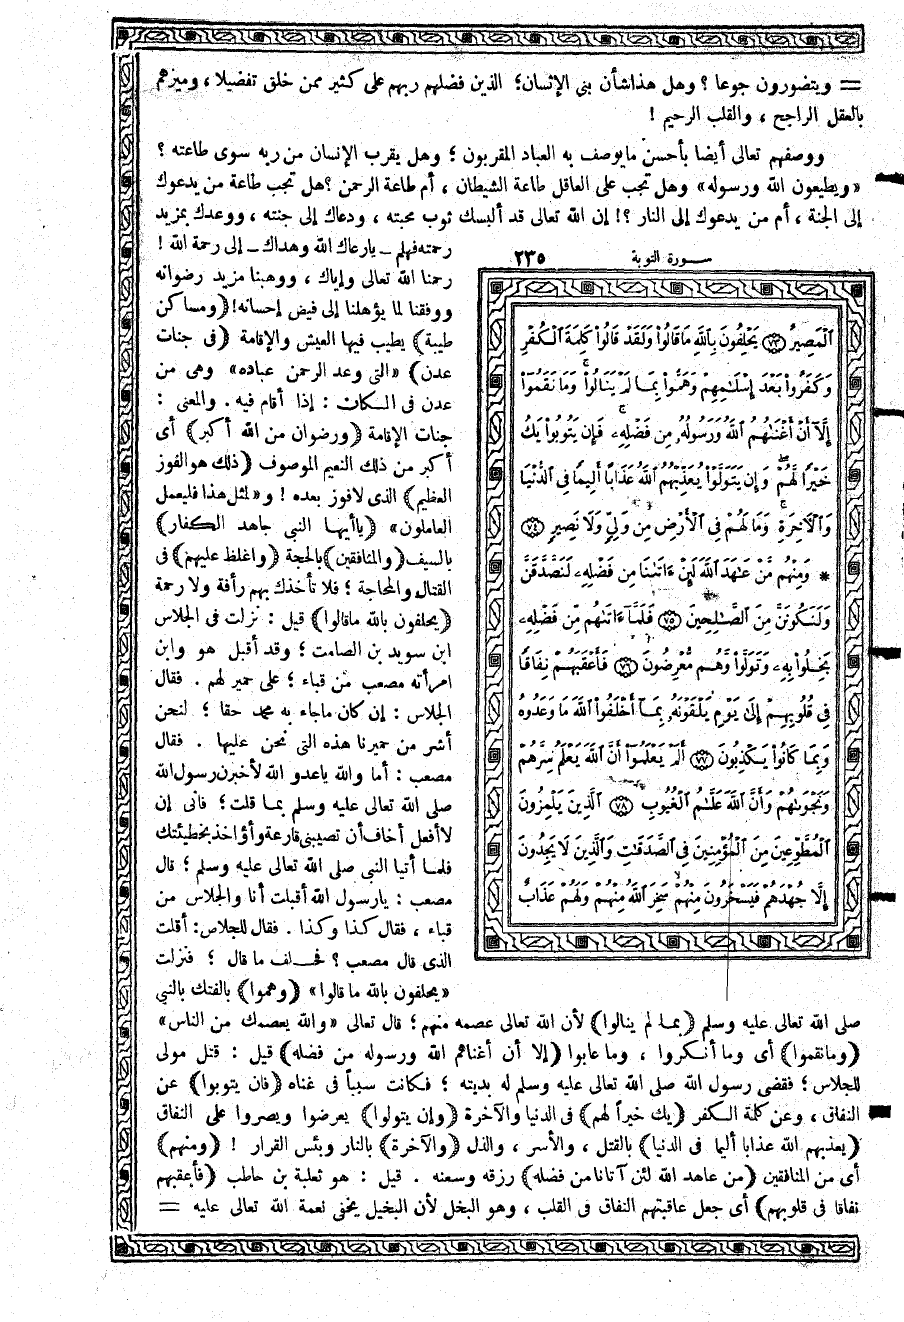 = ويتضورون جوعا ؟ وهل هذا شأن بنى الإنسان؛ الذين فضلهم ربهم على كثير ممن خلق تفضيلا ، وميزهم
بالعقل الراجح ، والقلب الرحيم !
ووصفهم تعالى أيضا بأحسن ما يوصف به العباد المقربون ؛ وهل يقرب الإنسان من ربه سوى طاعته ؟
«ويطيعون الله ورسوله» وهل تجب على العاقل طاعة الشيطان ، أم طاعة الرحمن ؟ هل تجب طاعة من يدعوك
إلى الجنة ، أم من يدعوك إلى النار ؟! إن الله تعالى قد ألبسك ثوب محبته ، ودعاك إلى جنته ، ووعدك بمزيد
رحمته فهلم ــ يارعاك الله وهداك ــ إلى رحمة الله !
رحمنا الله تعالى وإياك ، ووهبنا مزيد رضوانه
ووفقنا لما يؤهلنا إلى فيض إحسانه! (ومساكن
طيبة) يطيب فيها العيش والإقامة (فى جنات
عدن) «التى وعد الرحمن عباده» وهى من
عدن فى المكان : إذا أقام فيه . والمعنى :
جنات الإقامة (ورضوان من الله أكبر) أى
أكبر من ذلك النعيم الموصوف (ذلك هو الفوز
العظيم) الذى لا فوز بعده ! و«لمثل هذا فليعمل
العاملون» (ياأيها النبى جاهد الكفار)
بالسيف (والمنافقين) بالحجة (واغلظ عليهم) فى
القتال والمحاجة ؛ فلا تأخذك بهم رأفة ولا رحمة
(يحلفون بالله ماقالوا) قيل : نزلت فى الجلاس
ابن سويد بن الصامت ؛ وقد أقبل هو وابن
امرأته مصعب من قباء ؛ على حمير لهم . فقال
الجلاس : إن كان ماجاء به محمد حقا ؛ لنحن
أشر من حميرنا هذه التى نحن عليها . فقال
مصعب : أما والله ياعدو الله لأخبرن رسول الله
صلى الله تعالى عليه وسلم بما قلت ؛ فانى إن
لا أفعل أخاف أن تصيبنى قارعة وأؤاخذ بخطيئتك
فلما أتيا النبى صلى الله تعالى عليه وسلم ؛ قال
مصعب : يارسول الله أقبلت أنا والجلاس من
قباء ، فقال كذا وكذا . فقال للجلاس: أقلت
الذى قال مصعب ؟ فحلف ما قال ؛ فنزلت
«يحلفون بالله ما قالوا» (وهموا) بالفتك بالنبى
سورة التوبة ٢٣٥
ٱلْمَصِيرُ ٧٣ يَحْلِفُونَ بِٱللَّهِ مَا قَالُوا۟ وَلَقَدْ قَالُوا۟ كَلِمَةَ ٱلْكُفْرِ
وَكَفَرُوا۟ بَعْدَ إِسْلَٰمِهِمْ وَهَمُّوا۟ بِمَا لَمْ يَنَالُوا۟ ۚ وَمَا نَقَمُوٓا۟
إِلَّآ أَنْ أَغْنَىٰهُمُ ٱللَّهُ وَرَسُولُهُۥ مِن فَضْلِهِۦ ۚ فَإِن يَتُوبُوا۟ يَكُ
خَيْرًا لَّهُمْ ۖ وَإِن يَتَوَلَّوْا۟ يُعَذِّبْهُمُ ٱللَّهُ عَذَابًا أَلِيمًا فِى ٱلدُّنْيَا
وَٱلْءَاخِرَةِ ۚ وَمَا لَهُمْ فِى ٱلْأَرْضِ مِن وَلِىٍّ وَلَا نَصِيرٍ ٧٤
* وَمِنْهُم مَّنْ عَٰهَدَ ٱللَّهَ لَئِنْ ءَاتَىٰنَا مِن فَضْلِهِۦ لَنَصَّدَّقَنَّ
وَلَنَكُونَنَّ مِنَ ٱلصَّٰلِحِينَ ٧٥ فَلَمَّآ ءَاتَىٰهُم مِّن فَضْلِهِۦ
بَخِلُوا۟ بِهِۦ وَتَوَلَّوا۟ وَّهُم مُّعْرِضُونَ ٧٦ فَأَعْقَبَهُمْ نِفَاقًا
فِى قُلُوبِهِمْ إِلَىٰ يَوْمِ يَلْقَوْنَهُۥ بِمَآ أَخْلَفُوا۟ ٱللَّهَ مَا وَعَدُوهُ
وَبِمَا كَانُوا۟ يَكْذِبُونَ ٧٧ أَلَمْ يَعْلَمُوٓا۟ أَنَّ ٱللَّهَ يَعْلَمُ سِرَّهُمْ
وَنَجْوَىٰهُمْ وَأَنَّ ٱللَّهَ عَلَّٰمُ ٱلْغُيُوبِ ٧٨ ٱلَّذِينَ يَلْمِزُونَ
ٱلْمُطَّوِّعِينَ مِنَ ٱلْمُؤْمِنِينَ فِى ٱلصَّدَقَٰتِ وَٱلَّذِينَ لَا يَجِدُونَ
إِلَّا جُهْدَهُمْ فَيَسْخَرُونَ مِنْهُمْ سَخِرَ ٱللَّهُ مِنْهُمْ وَلَهُمْ عَذَابٌ
صلى الله تعالى عليه وسلم (بما لم ينالوا) لأن الله تعالى عصمه منهم ؛ قال تعالى «والله يعصمك من الناس»
(ومانقموا) أى وما أنكروا ، وما عابوا (إلا أن أغناهم الله ورسوله من فضله) قيل : قتل مولى
للجلاس ؛ فقضى رسول الله صلى الله تعالى عليه وسلم له بديته ؛ فكانت سبباً فى غناه (فان يتوبوا) عن
النفاق ، وعن كلمة الكفر (يك خيراً لهم) فى الدنيا والآخرة (وإن يتولوا) يعرضوا ويصروا على النفاق
(يعذبهم الله عذابا أليما فى الدنيا) بالقتل ، والأسر ، والذل (والآخرة) بالنار وبئس القرار ! (ومنهم)
أى من المنافقين (من عاهد الله لئن آتانا من فضله) رزقه وسعته . قيل : هو ثعلبة بن حاطب (فأعقبهم
نفاقا فى قلوبهم) أى جعل عاقبتهم النفاق فى القلب ، وهو البخل لأن البخيل يخفى نعمة الله تعالى عليه =